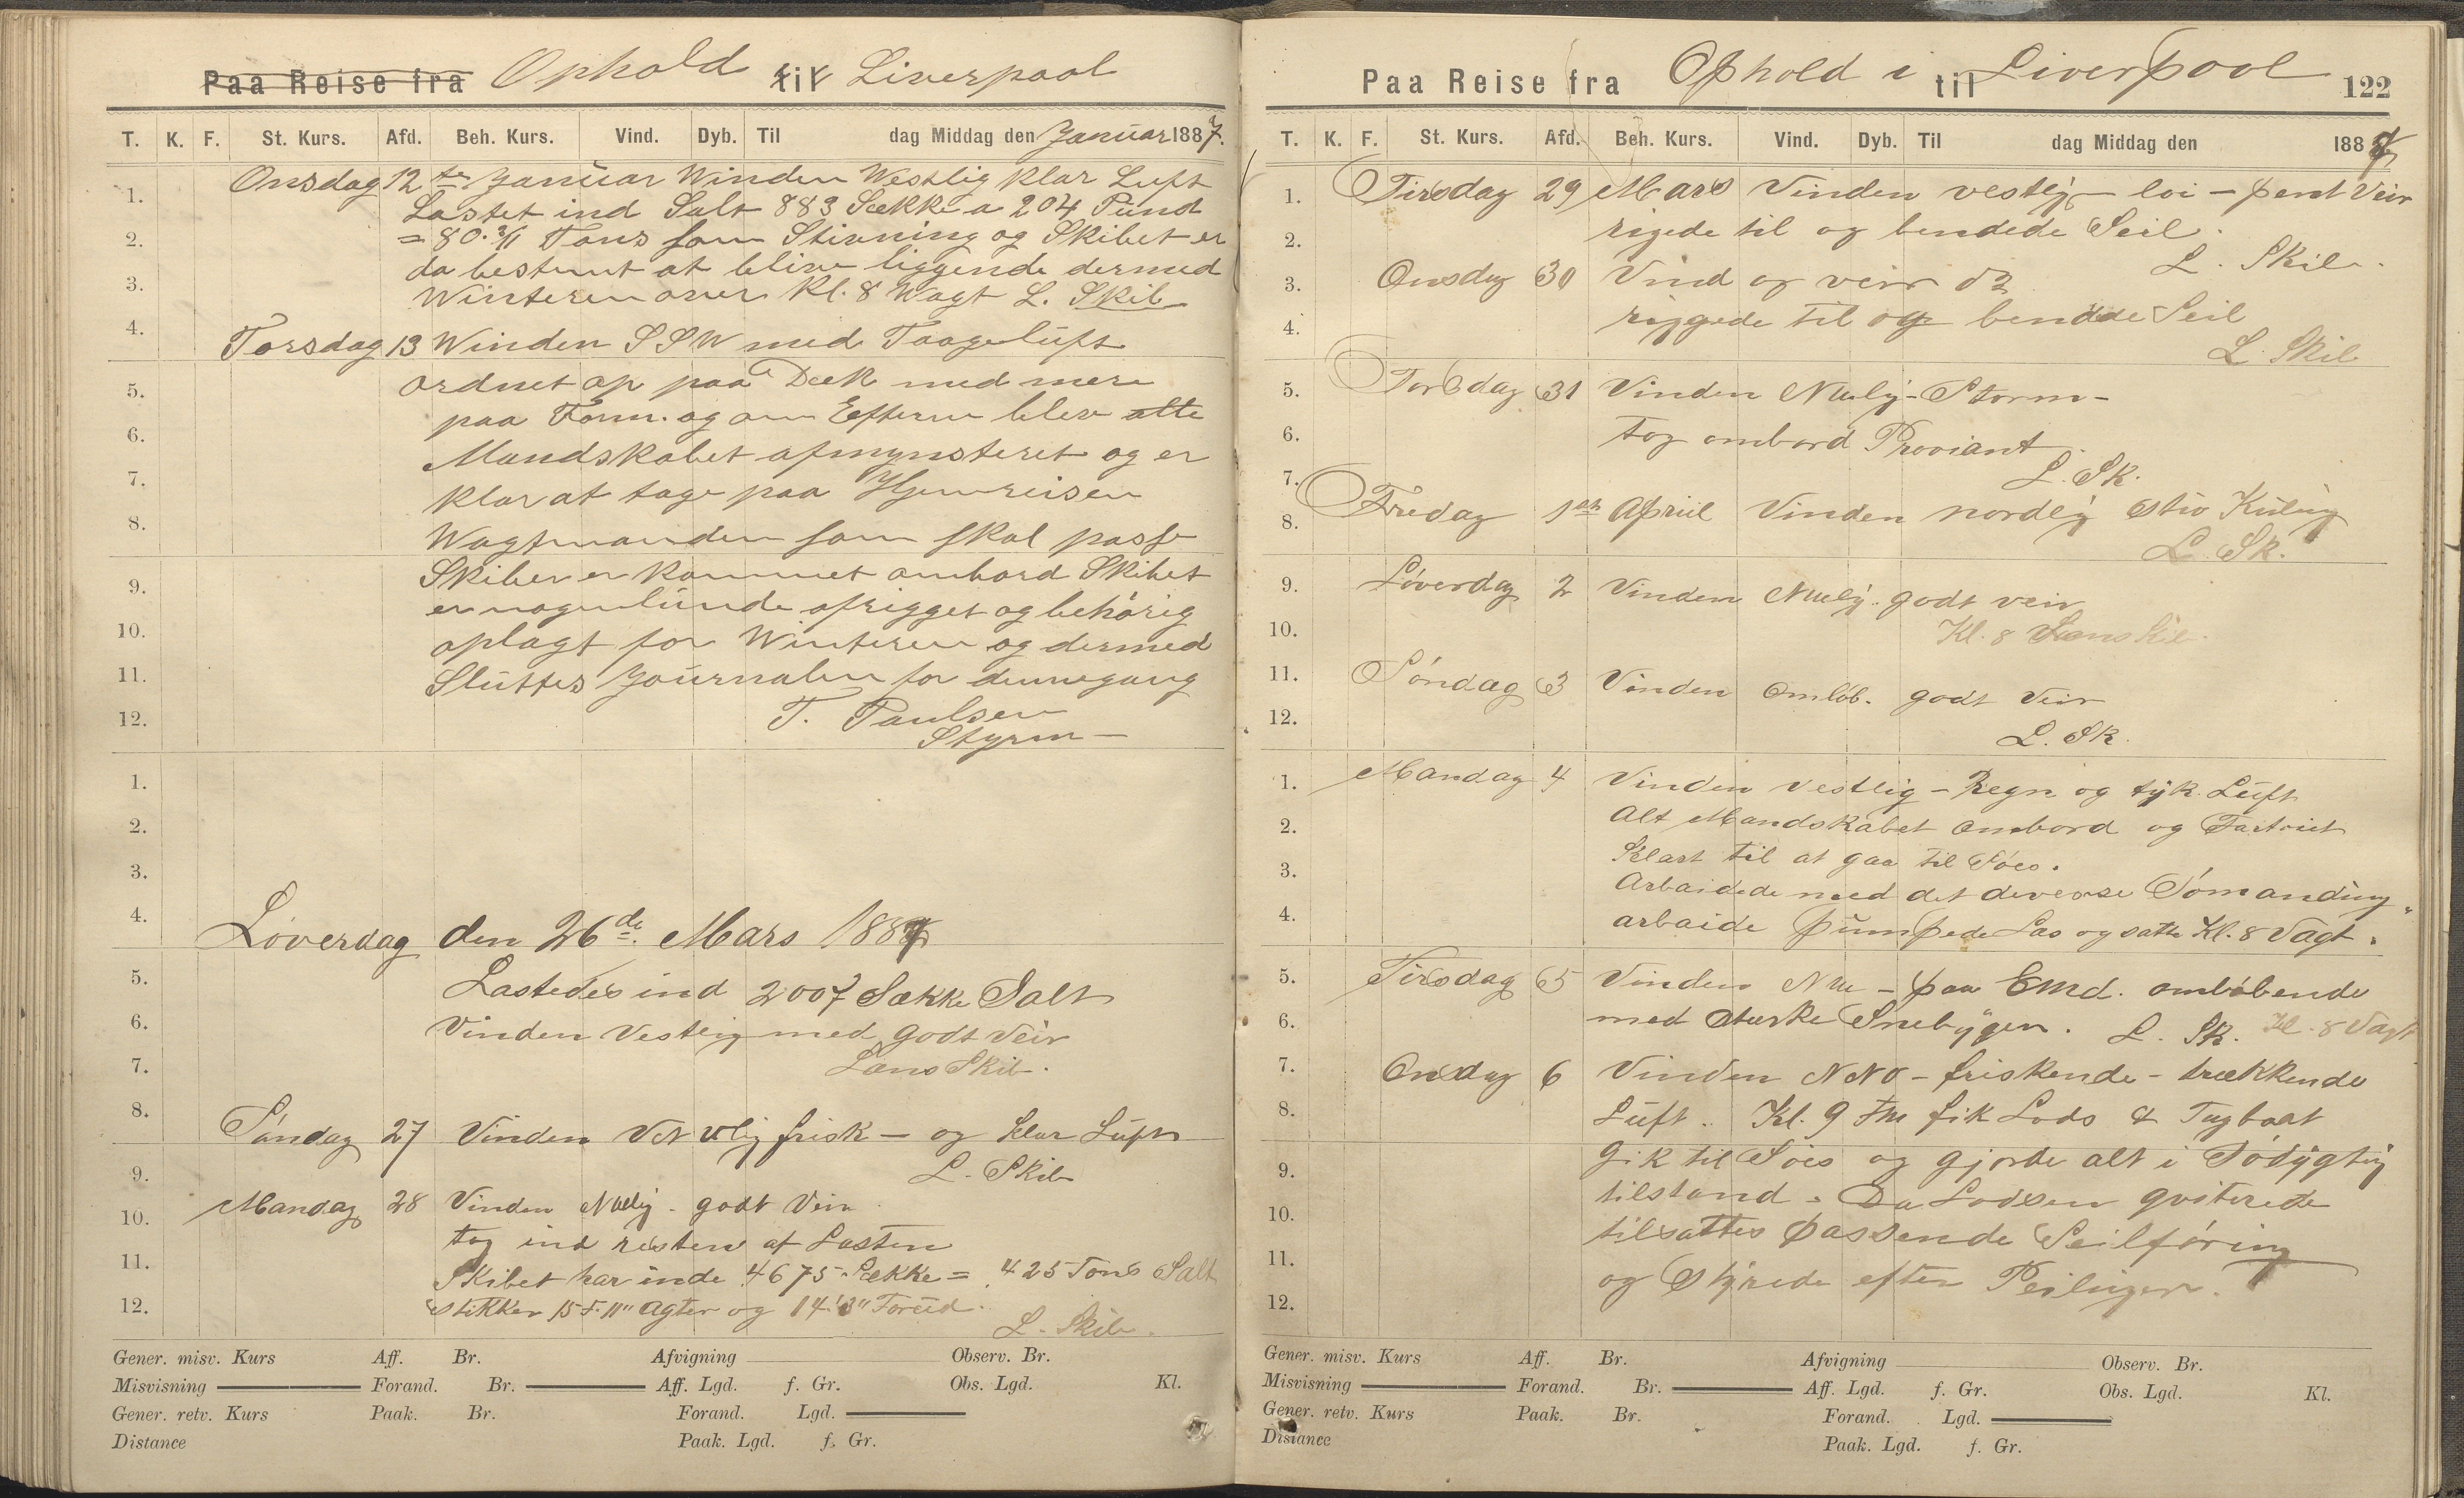 Paa Reise fra Ophold til Liverpool
T. K. F. St. Kurs. Afd. Beh. Kurs. Vind. Dyb. Til dag Middag den Januar 1887.
Onsdag 12te Januar Winden Westlig klar Luft
Lastet ind Salt 883 Sække a 204 Pund
= 80. Tons som Stivning og Skibet er
da bestemt at blive liggende dermed
Winteren over Kl. 8 Wagt L. Skib
Torsdag 13 Winden SSW med Taageluft
ordnet op paa Dæk med mere
paa Form. og om Efterm blev alle
Mandskabet afmynsteret og er
klar at tage paa Hjemreisen
Wagtmanden som skal passe
Skibet er kommet ombord Skibet
er nogenlunde afrigget og behörig
oplagt for Winteren og dermed
Sluttes Journalen for dennegang
T. Paulsen
Styrm
1.
2.
3.
4.
5.
6.
7.
8.
9.
10.
11.
12.
Löverdag den 26de Mars 1887
Lastedes ind 2007 Sække Salt
Vinden Vestlig med godt Veir
Læns Skib.
Söndag 27 Vinden VNVlig frisk – og klar Luft
L. Skib
Mandag 28 Vinden NVlig - godt Veir
tog ind resten af Lasten
Skibet har inde 4675 Sække = 425 Tons Salt
stikker 15 F. 11" Agter og 14' 3" Forud.
L. Skib.
1.
2.
3.
4.
5.
6.
7.
8.
9.
10.
11.
12.
Gener. misv. Kurs Aff. Br. Afvigning Observ. Br.
Misvisning Forand. Br. Aff. Lgd. f. Gr. Obs. Lgd. Kl.
Gener. retv. Kurs Paak. Br. Forand. Lgd.
Distance Paak. Lgd. f. Gr.
Paa Reise fra Ophold i til Liverpool 122
T. K. F. St. Kurs. Afd. Beh. Kurs. Vind. Dyb. Til dag Middag den 1887
Tirsdag 29 Mars Vinden vestlig – loi – pent Veir
rigede til og bendede Seil.
L. Skib.
Onsdag 30 Vind og veir do
riggede til og bendede Seil
L. Skib
Torsdag 31 Vinden NWlig - Storm -
tog ombord Proviant.
L. Sk.
Fredag 1ste Apriil Vinden nordlig stiv Kuling
L. Sk.
Löverdag 2 Vinden NWlig. godt veir
Kl. 8 Læns Skib.
Söndag 3 Vinden Omlöb. godt Veir
L. Sk.
1.
2.
3.
4.
5.
6.
7.
8.
9.
10.
11.
12.
Mandag 4 Vinden Vestlig – Regn og tyk Luft
Alt Mandskabet ombord og Fartöiet
Klart til at gaa til Söes.
Arbaidede med det deverse Sömanding
arbaide pumpede Læs og satte Kl. 8 Vagt.
Tirsdag 5 Vinden NW – paa Emd. omlöbende
med sterke Snebyger. L. Sk. Kl. 8 Vagt
Onsdag 6 Vinden NNO – friskende – trækkende
Luft. Kl. 9 Fm fik Lods & Tugboat
gik til Söes og gjorde alt i Södygtig
tilstand. Da Lodsen qviterede
tilsattes passende Seilföring
og styrede efter Peilinger.
1.
2.
3.
4.
5.
6.
7.
8.
9.
10.
11.
12.
Gener. misv. Kurs Aff. Br. Afvigning Observ. Br.
Misvisning Forand. Br. Aff. Lgd. f. Gr. Obs. Lgd. Kl.
Gener. retv. Kurs Paak. Br. Forand. Lgd.
Distance Paak. Lgd. f. Gr.